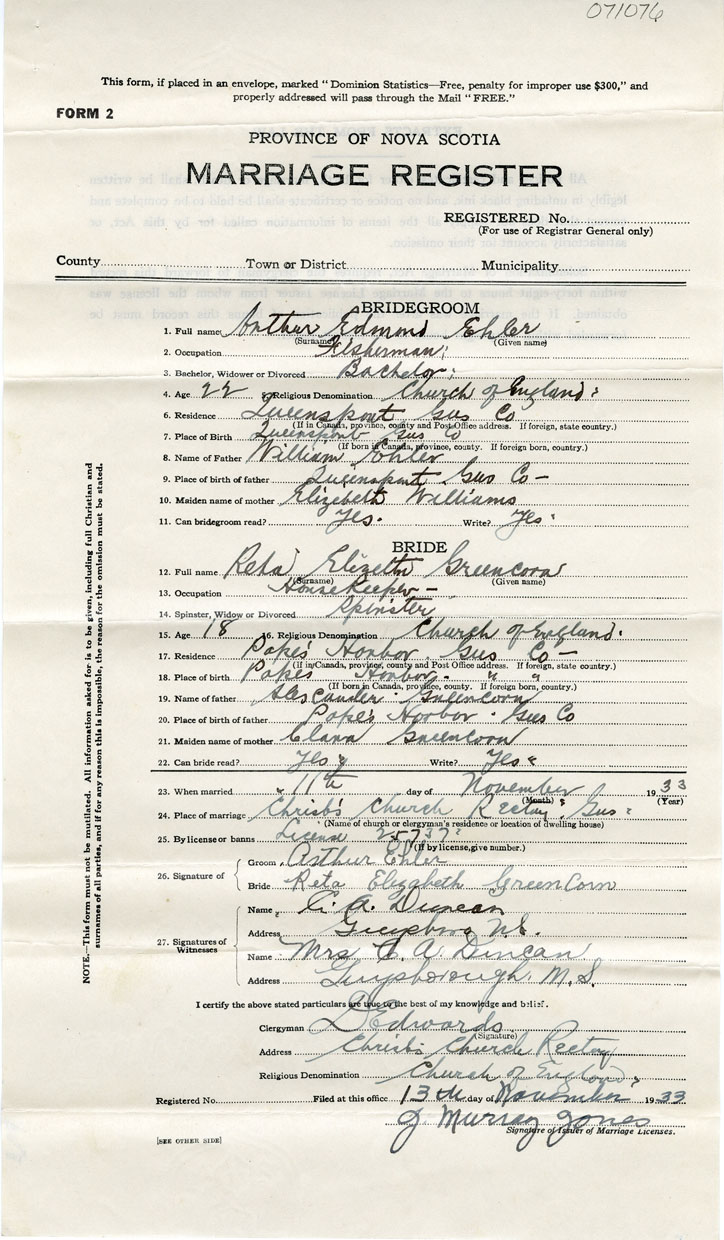 071076
This form, if placed in an envelope, marked "Dominion Statistics—Free, penalty for improper use $300," and
properly addressed will pass through the Mail "FREE."
FORM 2
PROVINCE OF NOVA SCOTIA
MARRIAGE REGISTER
REGISTERED No.
(For use of Registrar General only)
County Town or District Municipality
BRIDEGROOM
1. Full name Arthur Edmond Ehler
(Surname) (Given name)
2. Occupation Fisherman
3. Bachelor, Widower or Divorced Bachelor
4. Age 22 5. Religious Denomination Church of England
6. Residence Queensport Gus Co
(If in Canada, province, county and Post Office address. If foreign, state country.)
7. Place of Birth Queensport Gus Co
(If born in Canada, province, county. If foreign born, country.)
8. Name of Father William Ehler
9. Place of birth of father Queensport Gus Co —
10. Maiden name of mother Elizabeth Williams
11. Can bridegroom read? Yes. Write? Yes
BRIDE
12. Full name Reta Elizeth Greencorn
(Surname) (Given name)
13. Occupation HouseKeeper —
14. Spinster, Widow or Divorced Spinster
15. Age 18 16. Religious Denomination Church of England.
17. Residence Popes Harbor Gus Co —
(If in Canada, province, county and Post Office address. If foreign, state country.)
18. Place of birth Popes Harbor " "
(If born in Canada, province, county. If foreign born, country.)
19. Name of father Alexander Greencorn
20. Place of birth of father Pope's Harbor Gus Co
21. Maiden name of mother Clara Greencorn
22. Can bride read? Yes Write? Yes
23. When married 11th day of November 1933
(Month) (Year)
24. Place of marriage Christ's Church Rectory Gus
(Name of church or clergyman's residence or location of dwelling house)
25. By license or banns License 25737
(If by license, give number.)
26. Signature of Groom Arthur Ehler
Bride Reta Elizabeth GreenCorn
27. Signatures of Witnesses Name C. A. Duncan
Address Guysboro N.S.
Name Mrs C. A. Duncan
Address Guysborough N.S.
I certify the above stated particulars are true to the best of my knowledge and belief.
Clergyman Edwards
(Signature)
Address Christ's Church Rectory
Religious Denomination Church of England
Registered No. Filed at this office 13th day of November 1933
J. Murray Jones
Signature of Issuer of Marriage Licenses.
[SEE OTHER SIDE]
NOTE.—This form must not be mutilated. All information asked for is to be given, including full Christian and
surnames of all parties, and if for any reason this is impossible, the reason for the omission must be stated.